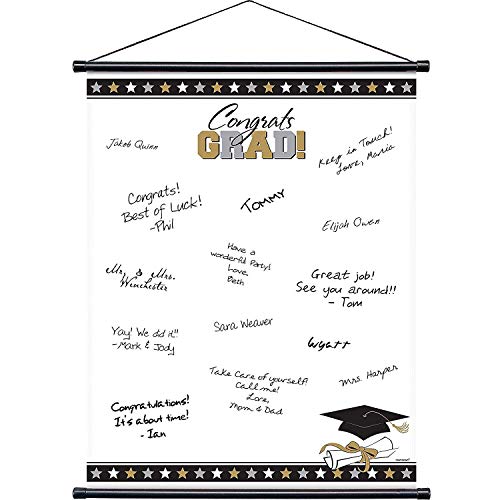 Congrats
GRAD!
Jakob Quinn
Keep in Touch!
Love, Maria
Congrats!
Best of Luck!
-Phil
TOMMY
Elijah Owen
Have a
wonderful Party!
Love,
Beth
Mr. & Mrs.
Winchester
Great job!
See you around!!
- Tom
Yay! We did it!!
- Mark & Jody
Sara Weaver
Wyatt
Take Care of yourself!
Call me!
Love,
Mom & Dad
Mrs. Harper
Congratulations!
It's about time!
- Ian